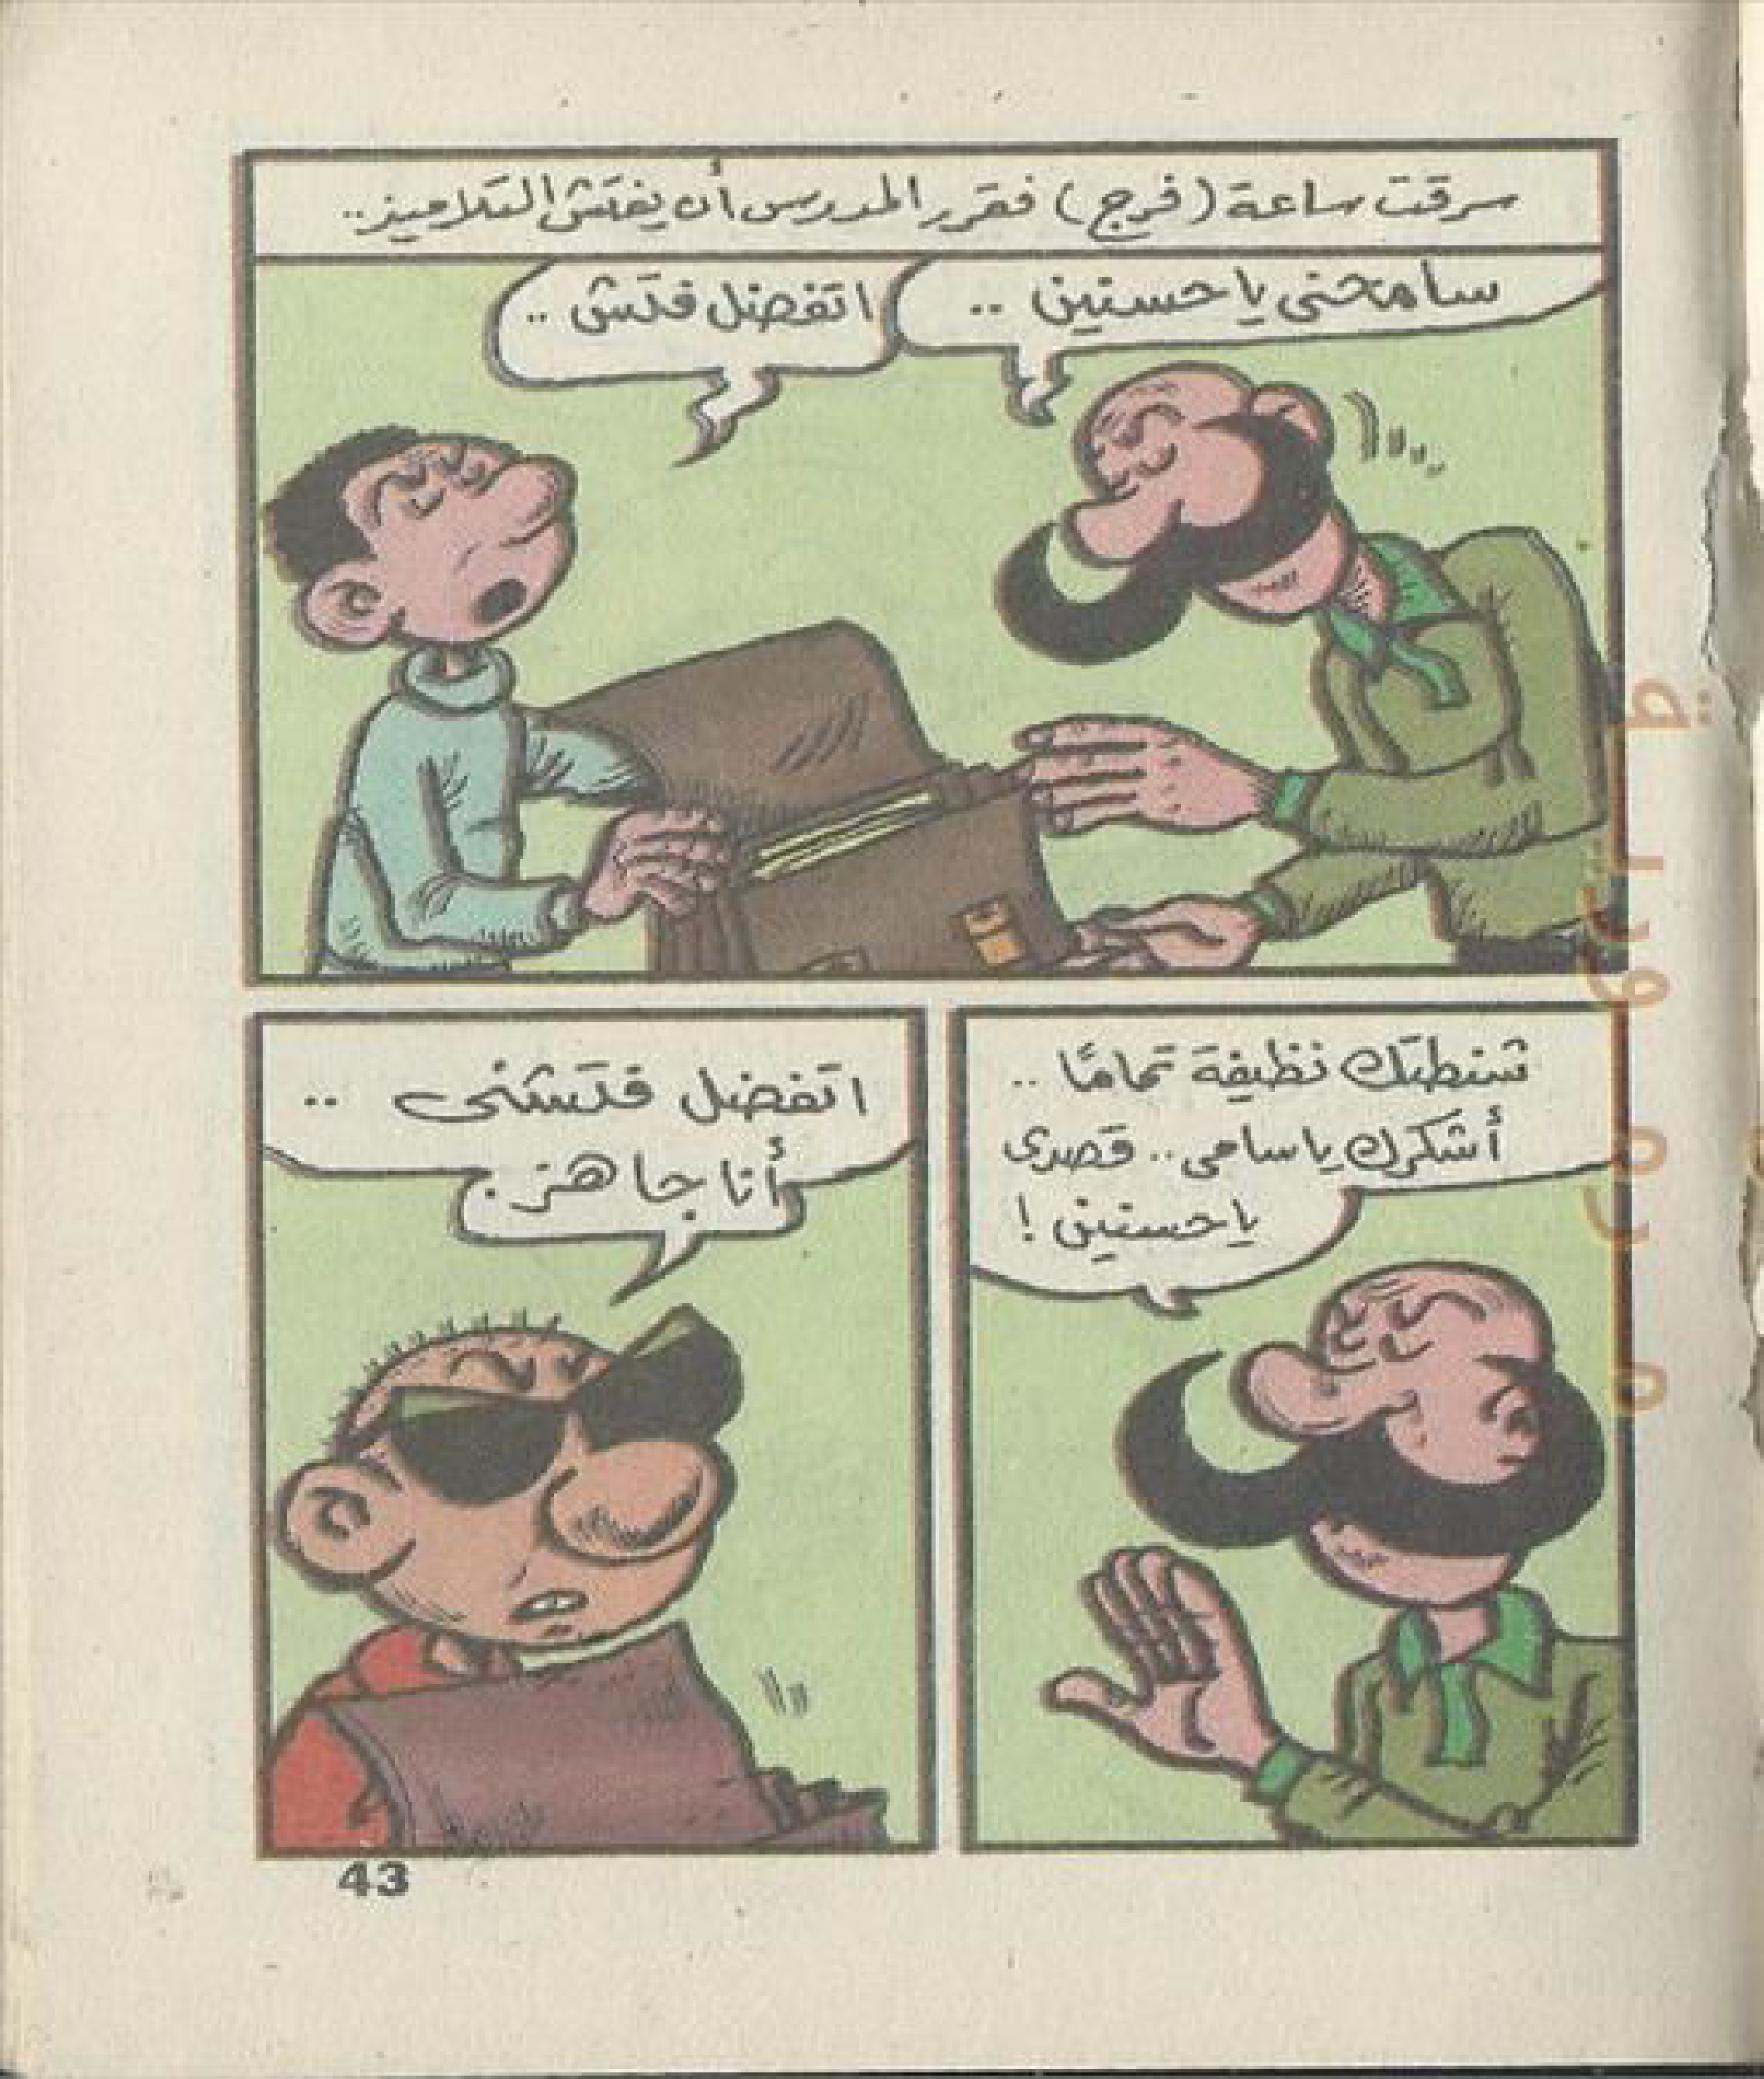 سرقت ساعة (فرج) فقرر المدرس أن يفتش التلاميذ..
سامحنى ياحسنين ..
اتفضل فتش ..
شنطتك نظيفة تمامًا ..
أشكرك ياسامى.. قصدى
ياحسنين !
اتفضل فتشنى ..
أنا جاهز.
43